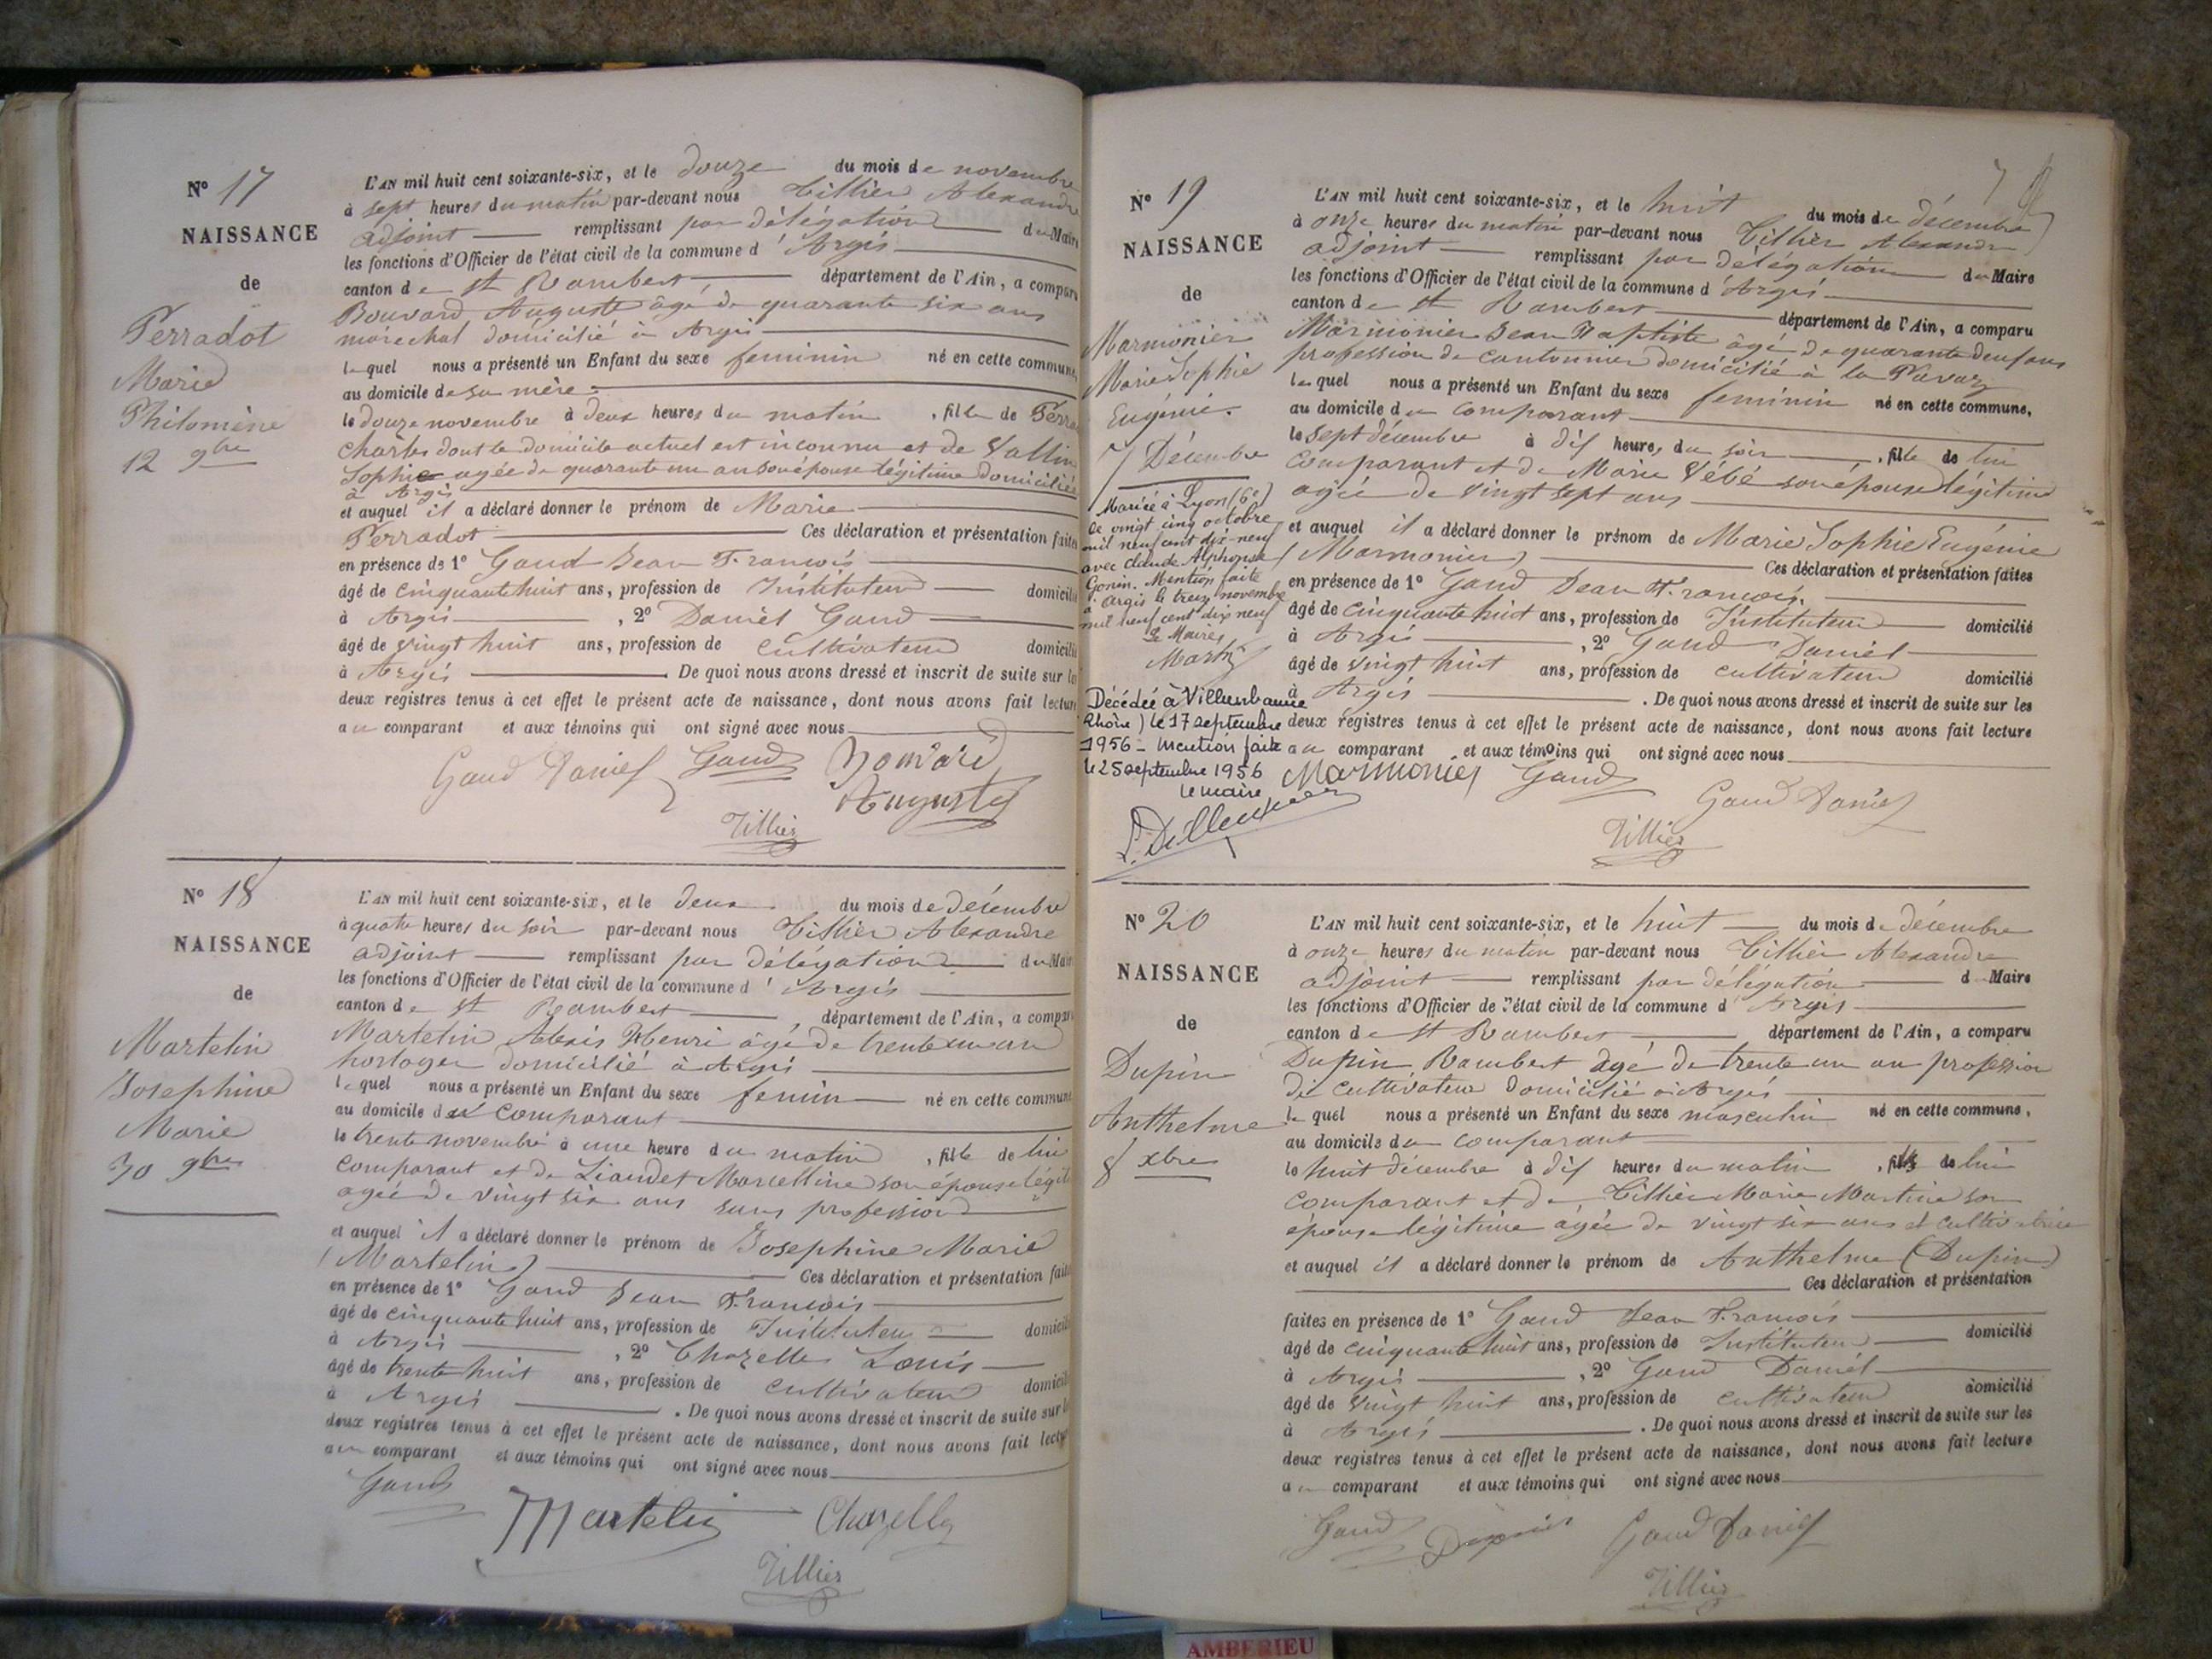 N° 17
NAISSANCE
de
Perradot
Marie
Philomène
12 9bre
L'AN mil huit cent soixante-six, et le douze du mois de novembre
à sept heures du matin par-devant nous Tillier Alexandre
adjoint remplissant par délégation du Maire
les fonctions d'Officier de l'état civil de la commune d'Argis
canton de St Rambert département de l'Ain, a comparu
Bouvard Auguste âgé de quarante six ans
maréchal domicilié à Argis
lequel nous a présenté un Enfant du sexe feminin né en cette commune,
au domicile de sa mère
le douze novembre à deux heures du matin, fille de Perra
Charles dont le domicile actuel est inconnu et de Vallin
Sophie agée de quarante un an son épouse légitime domiciliée
à Argis
et auquel il a déclaré donner le prénom de Marie
Perradot Ces déclaration et présentation faites
en présence de 1° Gaud Jean François
âgé de cinquante huit ans, profession de Instituteur domicilié
à Argis, 2° Daniel Gaud
âgé de vingt huit ans, profession de cultivateur domicilié
à Argis. De quoi nous avons dressé et inscrit de suite sur les
deux registres tenus à cet effet le présent acte de naissance, dont nous avons fait lecture
au comparant et aux témoins qui ont signé avec nous
Gaud Daniel Gaud Bouvard
Auguste
Tillier
N° 18
NAISSANCE
de
Martelin
Josephine
Marie
30 9bre
L'AN mil huit cent soixante-six, et le deux du mois de décembre
à quatre heures du soir par-devant nous Tillier Alexandre
adjoint remplissant par délégation du Maire
les fonctions d'Officier de l'état civil de la commune d'Argis
canton de St Rambert département de l'Ain, a comparu
Martelin Alexis Henri âgé de trente un an
horloger domicilié à Argis
lequel nous a présenté un Enfant du sexe feminin né en cette commune
au domicile du comparant
le trente novembre à une heure du matin, fille de lui
comparant et de Liaudet Marcelline son épouse légit
agée de vingt six ans sans profession
et auquel il a déclaré donner le prénom de Josephine Marie
(Martelin) Ces déclaration et présentation faites
en présence de 1° Gaud Jean François
âgé de cinquante huit ans, profession de Instituteur domicilié
à Argis, 2° Chazelle Louis
âgé de trente huit ans, profession de cultivateur domicilié
à Argis. De quoi nous avons dressé et inscrit de suite sur le
deux registres tenus à cet effet le présent acte de naissance, dont nous avons fait lectu
au comparant et aux témoins qui ont signé avec nous
Gaud
Martelin Chazelle
Tillier
N° 19
NAISSANCE
de
Marmonier
Marie Sophie
Eugénie.
7 Décembre
Mariée à Lyon (6e)
le vingt cinq octobre
mil neuf cent dix-neuf
avec Claude Alphonse
Gonin. Mention faite
à Argis le treize novembre
mil neuf cent dix neuf
Le Maire,
Martin
Décédée à Villeurbanne
(Rhône) le 17 septembre
1956 - Mention faite
le 25 septembre 1956
Le maire
L'AN mil huit cent soixante-six, et le huit du mois de décembre
à onze heures du matin par-devant nous Tillier Alexandre
adjoint remplissant par délégation du Maire
les fonctions d'Officier de l'état civil de la commune d'Argis
canton de St Rambert département de l'Ain, a comparu
Marmonier Jean Baptiste âgé de quarante deux ans
profession de cantonnier domicilié à la
lequel nous a présenté un Enfant du sexe feminin né en cette commune,
au domicile du comparant
le sept décembre à dix heures du soir, fille de lui
comparant et de Marie Bébé son épouse légitime
agée de vingt sept ans
et auquel il a déclaré donner le prénom de Marie Sophie Eugénie
(Marmonier) Ces déclaration et présentation faites
en présence de 1° Gaud Jean François.
âgé de cinquante huit ans, profession de Instituteur domicilié
à Argis, 2° Gaud Daniel
âgé de vingt huit ans, profession de cultivateur domicilié
à Argis. De quoi nous avons dressé et inscrit de suite sur les
deux registres tenus à cet effet le présent acte de naissance, dont nous avons fait lecture
au comparant et aux témoins qui ont signé avec nous
Marmonier Gaud
Gaud Daniel
Tillier
N° 20
NAISSANCE
de
Dupin
Anthelme
8 xbre
L'AN mil huit cent soixante-six, et le huit du mois de décembre
à onze heures du matin par-devant nous Tillier Alexandre
adjoint remplissant par délégation d Maire
les fonctions d'Officier de l'état civil de la commune d'Argis
canton de St Rambert département de l'Ain, a comparu
Dupin Rambert âgé de trente un an profession
de cultivateur domicilié à Argis
lequel nous a présenté un Enfant du sexe masculin né en cette commune,
au domicile du comparant
le huit décembre à dix heures du matin, fils de lui
comparant et de Tillier Marie Martine son
épouse légitime agée de vingt six ans et cultivatrice
et auquel il a déclaré donner le prénom de Anthelme (Dupin)
Ces déclaration et présentation
faites en présence de 1° Gaud Jean François
âgé de cinquante huit ans, profession de Instituteur domicilié
à Argis, 2° Gaud Daniel
âgé de vingt huit ans, profession de cultivateur domicilié
à Argis. De quoi nous avons dressé et inscrit de suite sur les
deux registres tenus à cet effet le présent acte de naissance, dont nous avons fait lecture
au comparant et aux témoins qui ont signé avec nous
Gaud Dupin Gaud Daniel
Tillier
AMBERIEU